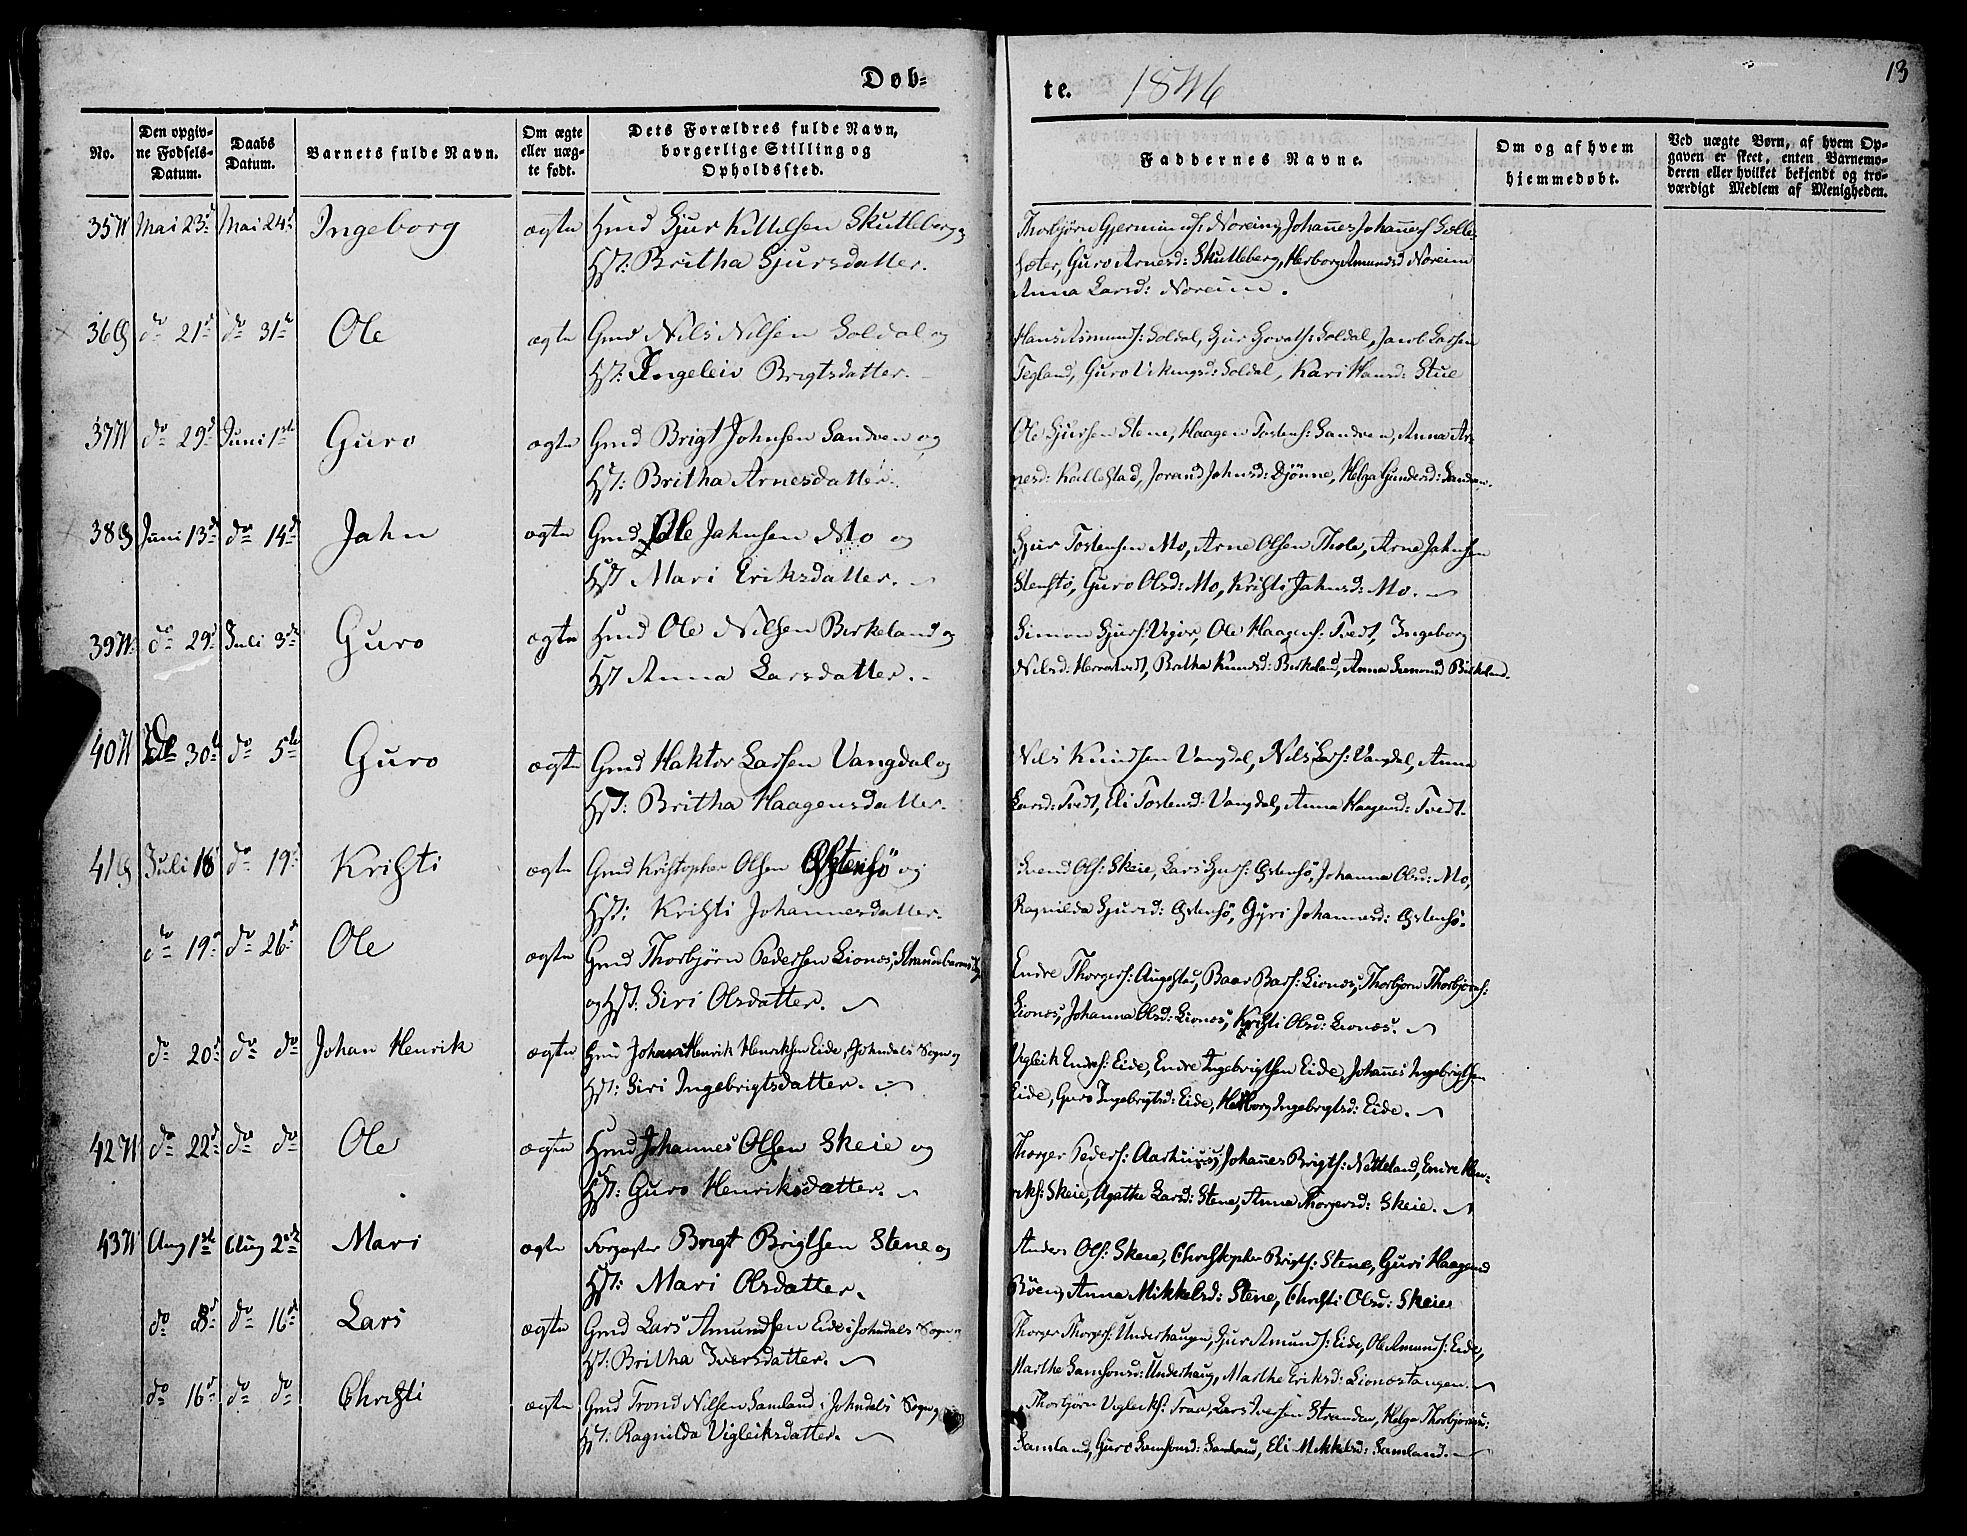 Døb-
te. 1846
13
No.
Den opgiv-
ne Fødsels-
Datum.
Daabs
Datum.
Barnets fulde Navn.
Om ægte
eller uæg-
te født.
Dets Forældres fulde Navn,
borgerlige Stilling og
Opholdssted.
Faddernes Navne.
Om og af hvem
hjemmedøbt.
Ved uægte Børn, af hvem Op-
gaven er skeet, enten Barnemo-
deren eller hvilket bekjendt og tro-
værdigt Medlem af Menigheden.
35 Mai 23d Mai 24d Ingeborg ægte Hmd Sjur Kittelsen Skutleberg
Hst: Britha Sjursdatter.
Thorbjørn Noreim, Johannes Johannes
Guro Arnesd: Skutleberg, Herborg Amundsd Noreim
Anna Larsd: Noreim.
36 do 21d do 31te Ole ægte Gmd Nils Nilsen Soldal og
Hst: Ingeleiv Brigtsdatter.
Hans Asmunds: Soldal, Sjur Soldal, Jacob Larsen
Tegland, Guro Vikingsd: Soldal, Kari Hansd: Stue
37 do 29d Juni 1ste Guro ægte Gmd Brigt Johnsen Sandven og
Hst: Britha Arnesdatter.
Ole Sjursen Stene, Haagen Tostens: Sandven, Anna Ar-
nesd: Kallestad, Jorand Johnsd: Djønne, Helga Gundersd: Sandven.
38 Juni 13d do 14d Jahn ægte Gmd Ole Jahnsen Mo og
Hst Mari Eriksdatter.
Sjur Tostensen Mo, Arne Olsen Thole, Arne Jahnsen
Stenstø, Guro Olsd: Mo, Kristi Jahnsd: Mo.
39 do 29d Juli 3die Guro ægte Hmd Ole Nilsen Birkeland og
Hst Anna Larsdatter.
Simon Sjurs: Ole Haagens: Tvedt, Ingeborg
Nilsd: Britha Knudsd: Birkeland, Anna Birkeland.
40 do 30te do 5te Guro ægte Gmd Haktor Larsen Vangdal og
Hst: Britha Haagensdatter.
Nils Knudsen Vangdal, Nils Lars: Vangdal, Anna
Larsd: Tvedt, Eli Tostensd: Vangdal, Anna Haagensd: Tvedt.
41 Juli 18 do 19d Kristi ægte Gmd Kristopher Olsen Østensø og
Hst: Kristi Johannesdatter.
Svend Ols: Skeie, Lars Sjurs: Østensø, Johanna Olsd: Mo,
Ragnilda Sjursd: Østensø, Gyri Johannesd: Østensø.
do 19d do 26d Ole ægte Gmd Thorbjørn Pedersen Lionæs, Strandebarms
og Hst: Siri Olsdatter.
Endre Thorgers: Augestad, Baar Bars: Lionæs, Thorbjørn Thorbjørns:
Lionæs, Johanna Olsd: Lionæs, Kristi Olsd: Lionæs.
do 20d do do Johan Henrik ægte Gmd Johan Henrik Henriksen Eide, Johndals Sogn og
Hst: Siri Ingebrigtsdatter.
Vigleik Endres: Eide, Endre Ingebrigtsen Eide, Johannes Ingebrigtsen
Eide, Guro Ingebrigtsd: Eide, Herborg Ingebrigtsd: Eide.
42 do 22d do do Ole ægte Hmd Johannes Olsen Skeie og
Hst: Guro Henriksdatter.
Thorger Peders: Aarhuus, Johannes Brigts: Netteland, Endre Hen-
riks: Skeie, Agathe Larsd: Stene, Anna Thorgersd: Skeie.
43 Aug 1ste Aug 2den Mari ægte Forpagter Brigt Brigtsen Stene og
Hst: Mari Olsdatter.
Anders Ols: Skeie, Christopher Brigts: Stene, Guri Haagensd
Røen, Anna Mikkelsd: Stene, Christi Olsd: Skeie
do 8d do 16d Lars ægte Gmd Lars Amundsen Eide i Johndals Sogn
Hst: Britha Iversdatter.
Thorger Thorgers: Underhaugen, Sjur Amunds: Eide, Ole Amunds: Eide,
Marthe Samsonsd: Underhaug, Marthe Eriksd: Lionæstangen.
do 16d do do Christi ægte Gmd Trond Nilsen Samland i Johndals Sogn og
Hst: Ragnilda Vigleiksdatter.
Thorbjørn Vigleiks: Traa, Lars Iversen Stranden, Helga Thorbjørnsd:
Samland, Guro Samsonsd: Samland, Eli Mikkelsd: Samland.